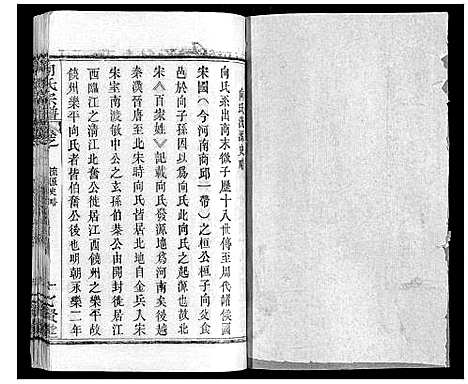 向氏渊源史略
向氏系出商末微子歷十八世传至周代諸侯國
宋國（今河南商邱一帶）之桓公桓子向父食
邑於向子孫因以為向氏此向氏之起源也又據
宋《百家姓》記載向氏發源為河南矣後越
秦漢晋唐至北宋時向氏皆居北地自金兵入宋
宋室南渡敏中公之玄孫泰公由開封徙居江
西臨江之清江北奮公徙居江西饒州之樂平故
饒州樂平向氏者皆伯奮公後也明朝永樂二年
向氏宗譜
卷之
渊源史略